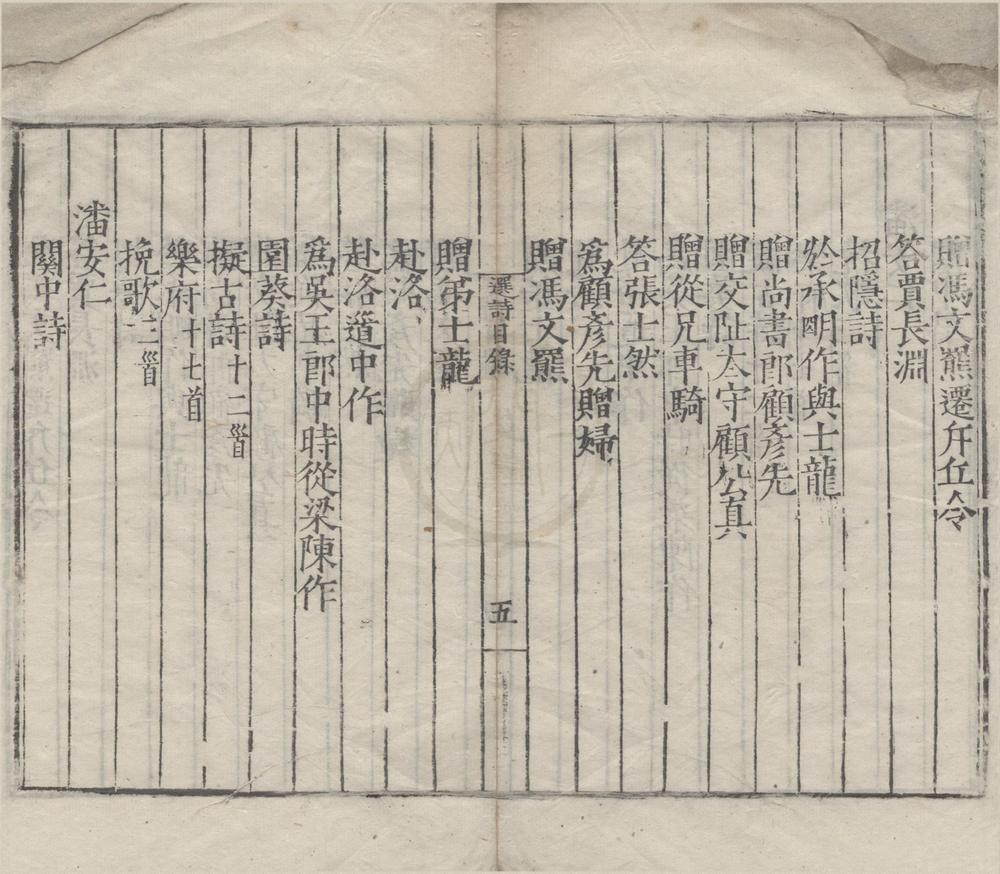 贈馮文羆遷斥丘令
答賈長淵
招隱詩
於承明作與士龍
贈尚書郎顧彥先
贈交阯太守顧公真
贈從兄車騎
答張士然
為顧彥先贈婦
贈馮文羆
選詩目錄
五
贈弟士龍
赴洛
赴洛道中作
為吳王郎中時從梁陳作
園葵詩
擬古詩十二首
樂府十七首
挽歌三首
潘安仁
關中詩